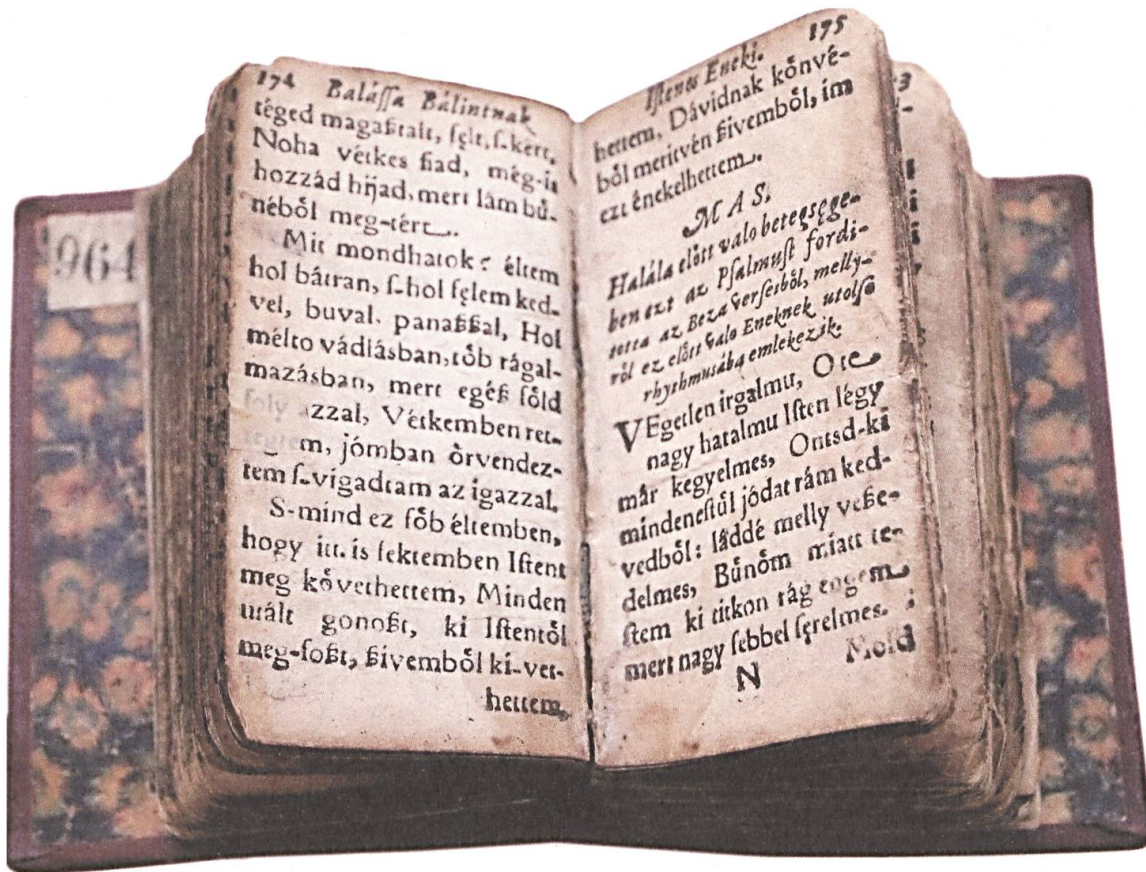 964
174 Baláſſa Bálintnak
téged magaßtalt, ſęlt, ſ-kért,
Noha vétkes fiad, még-is
hozzád hijad, mert lám bů-
néből meg-tért.
Mit mondhatok? éltem
hol bátran, ſ-hol ſęlem ked-
vel, buval, panaßßal, Hol
mélto vádlásban, tőb rágal-
mazásban, mert egéß főld
foly azzal, Vétkemben ret-
tegtem, jómban őrvendez-
tem ſ-vigadtam az igazzal.
S-mind ez főb éltemben,
hogy itt is fektemben Iſtent
meg kővethettem, Minden
utált gonoßt, ki Iſtentől
meg-foßt, ßivemből ki-vet-
hettem,
Iſtenes Eneki. 175
hettem, Dávidnak kőnvé-
ből meritvén ßivemből, im
ezt énekelhettem.
MAS.
Halála előtt valo betegsęge-
ben ezt az Pſalmuſt fordi-
totta az Beza Verſeiből, melly-
ről ez előtt valo Eneknek utolſo
rhythmusába emlekezik.
VEgetlen irgalmu, O te
nagy hatalmu Iſten légy
már kegyelmes, Ontsd-ki
mindeneſtůl jódat rám ked-
vedből: láddé melly veße-
delmes, Bůnőm miatt te-
ſtem ki titkon rág engem
mert nagy ſebbel ſęrelmes.
N Moſd
3